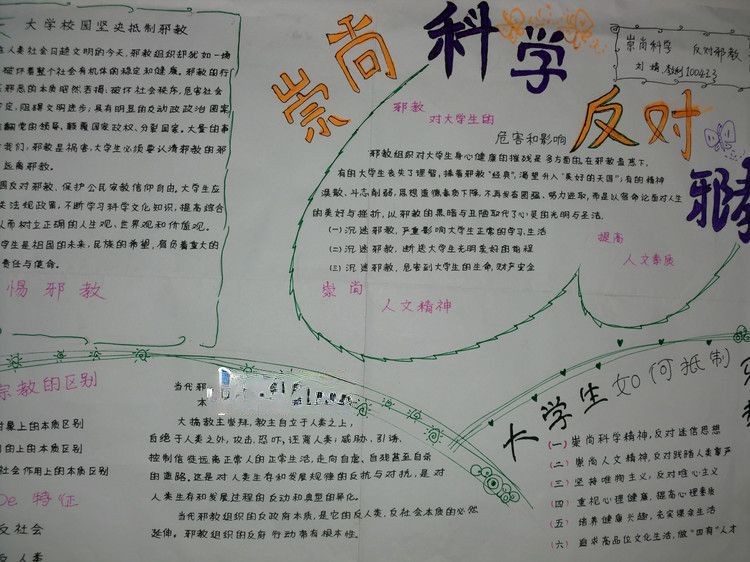 大学校园坚决抵制邪教
在人类社会日趋文明的今天,邪教组织却犹如一场
破坏着整个社会有机体的稳定和健康。邪教的行
在邪恶的本质昭然若揭:破坏社会秩序,危害社会
安定,阻碍文明进步;具有明显的反动政政治图案
推翻党的领导,颠覆国家政权、分裂国家。大量的事
我们,邪教是祸害,大学生必须要认清邪教的邪
远离邪教。
反对邪教,保护公民宗教信仰自由。大学生应
法规政策,不断学习科学文化知识,提高综合
从而树立正确的人生观、世界观和价值观。
学生是祖国的未来,民族的希望,肩负着重大的
责任与使命。
惕邪教
崇尚科学
反对邪教
崇尚科学 反对邪教
刘 100423
邪教
对大学生的
危害和影响
邪教组织对大学生身心健康的摧残是多方面的。在邪教蛊惑下,
有的大学生丧失了理智,捧着邪教“经典”,渴望升入“美好的天国”;有的精神
涣散,斗志削弱,思想道德素质下降,不再发奋图强、努力进取,而是以宿命论面对人生
的美好与挫折,以邪教的黑暗与丑陋取代了心灵的光明与圣洁。
(一)沉迷邪教,严重影响大学生正常的学习生活
(二)沉迷邪教,断送大学生光明美好的前程
(三)沉迷邪教,危害到大学生的生命、财产安全
提高
人文素质
崇尚
人文精神
宗教的区别
对象上的本质区别
目的上的本质区别
社会作用上的本质区别
De 特征
反社会
反人类
当代邪
本
大搞教主崇拜,教主自立于人类之上,
自绝于人类之外,攻击、恐吓、诬蔑人类;威胁、引诱、
控制信徒远离正常人的正常生活,走向自虐、自残甚至自杀
的道路。这是对人类生存和发展规律的反抗与对抗,是对
人类生存和发展过程的反动和典型的异化。
当代邪教组织的反政府本质,是它的反人类、反社会本质的必然
延伸。邪教组织的反府行动带有根本性。
大学生如何抵制
(一)崇尚科学精神,反对迷信思想
(二)崇尚人文精神,反对践踏人类尊严
(三)坚持唯物主义,反对唯心主义
(四)重视心理健康,提高心理素质
(五)培养健康兴趣,充实课余生活
(六)追求高品位文化生活,做“四有”人才